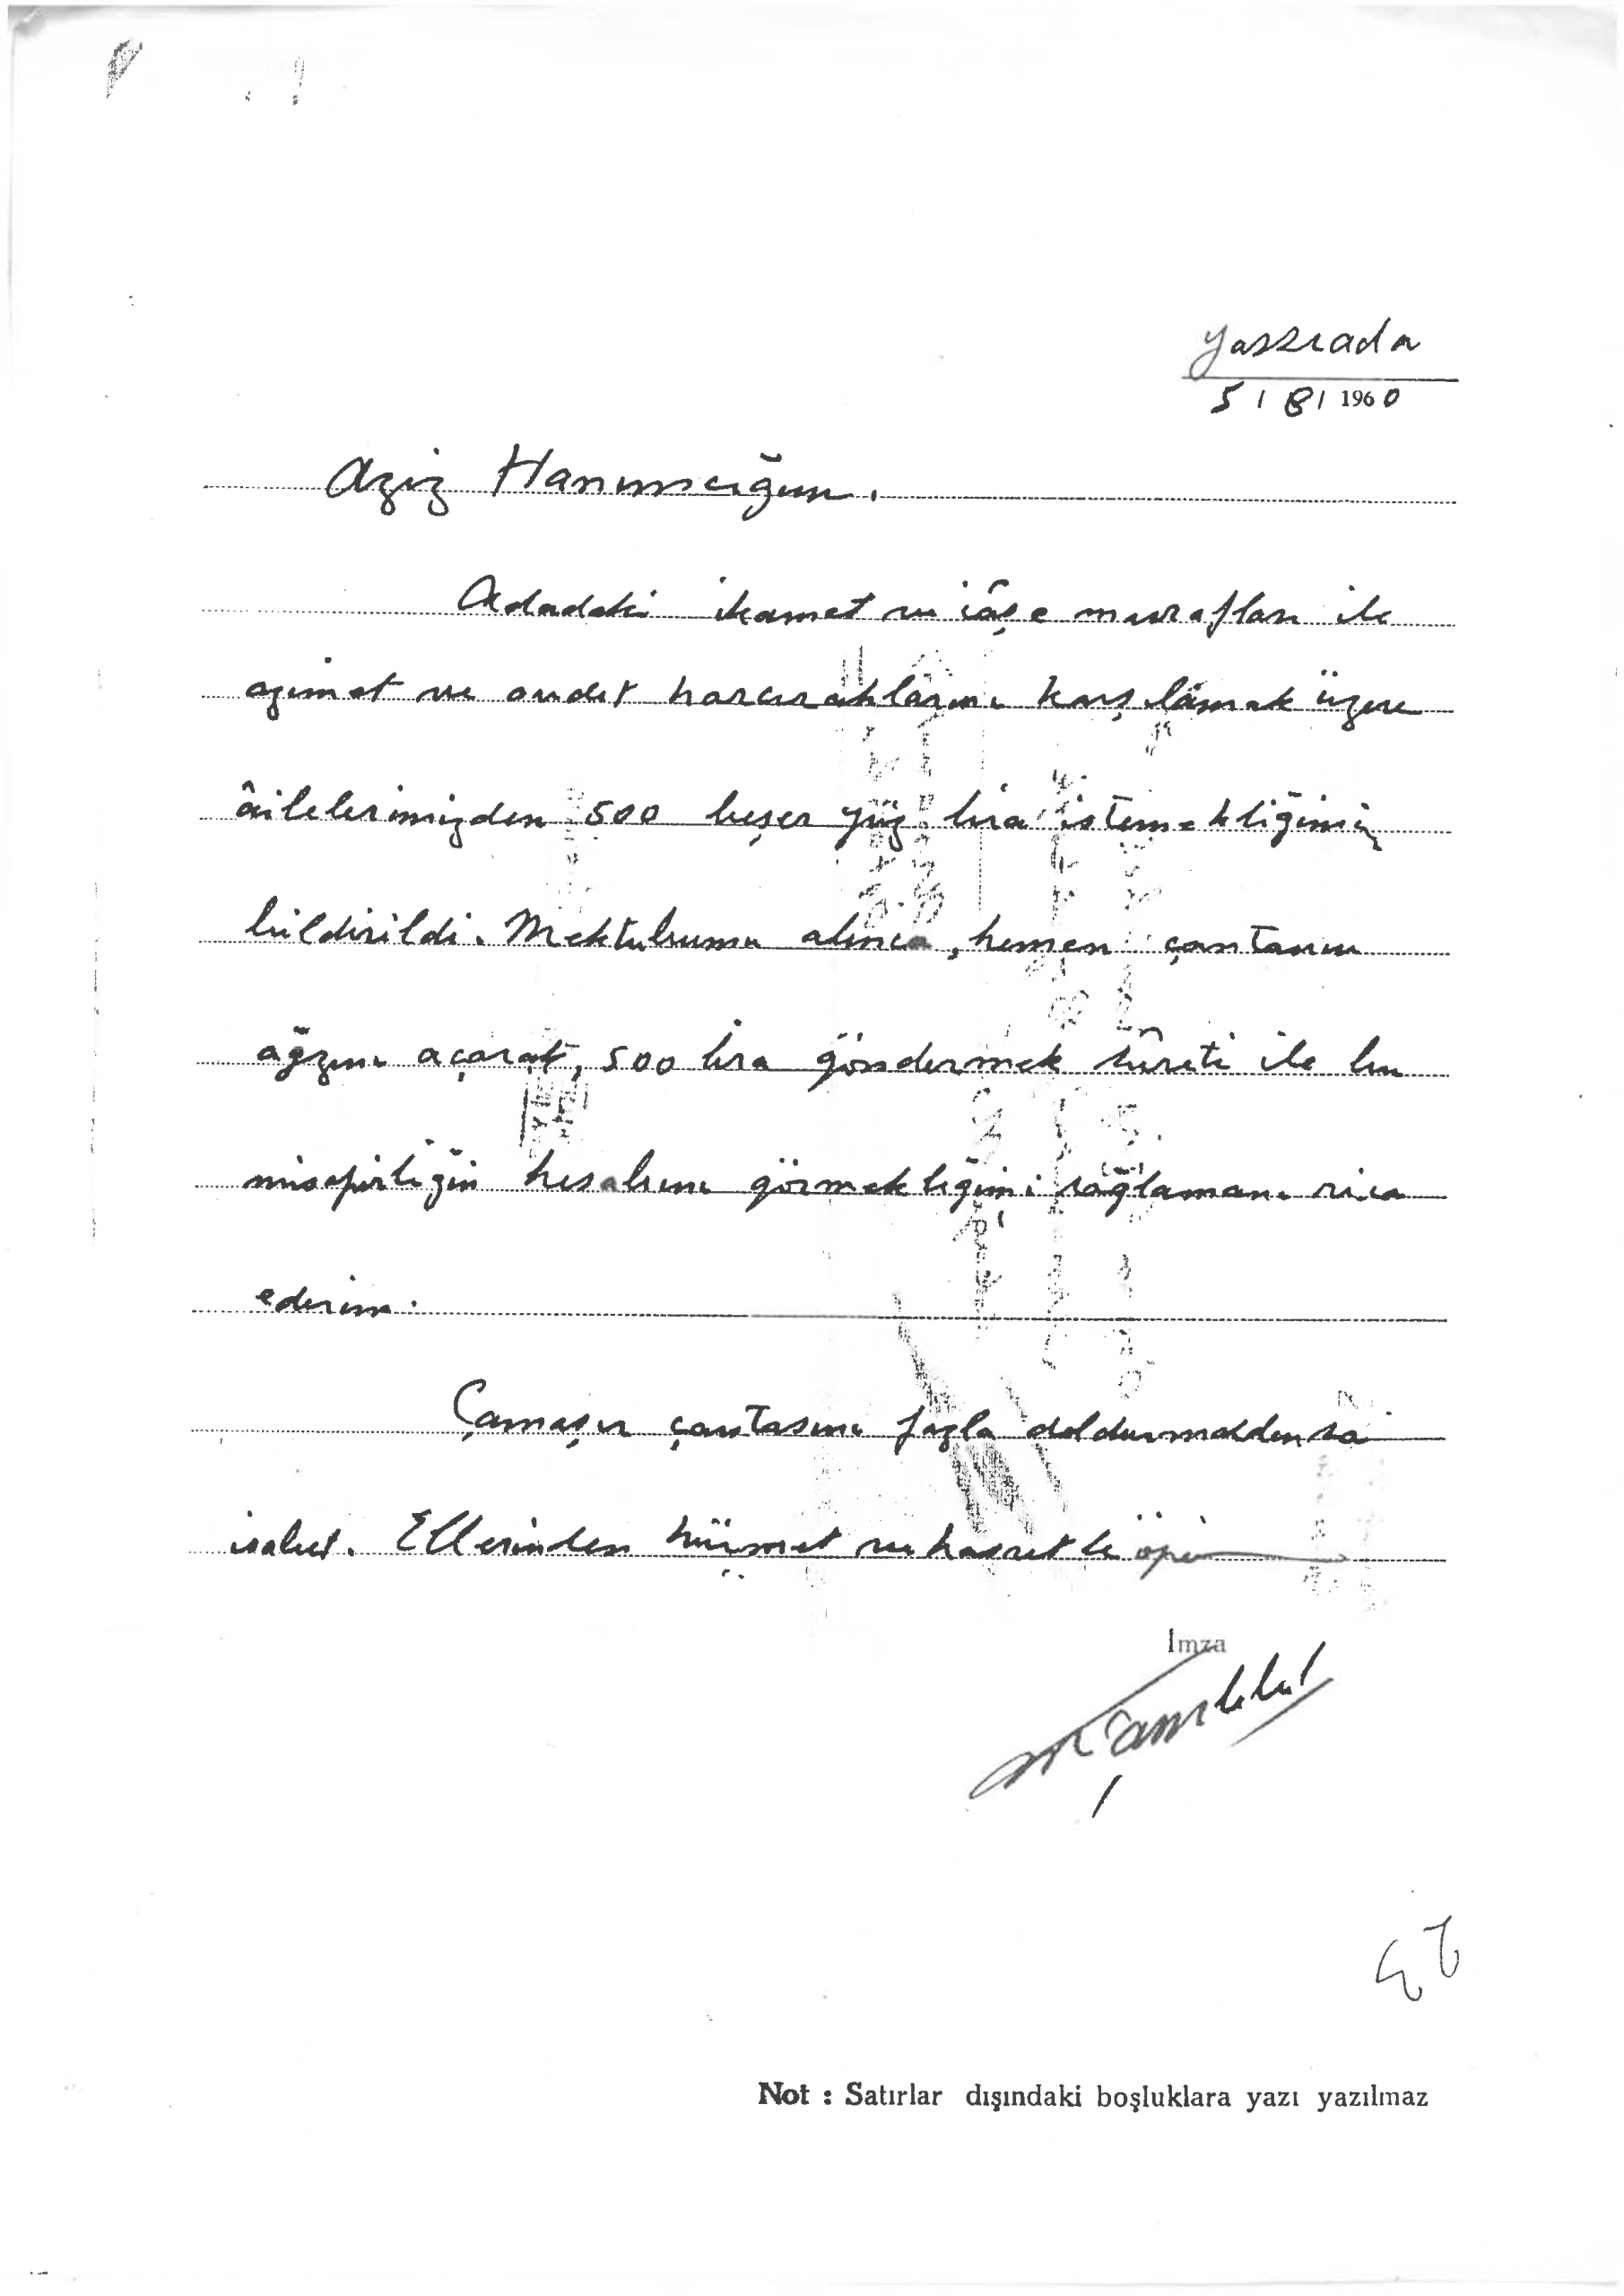 Yassıada
5 / 8 / 1960
Aziz Hanımcığım,
Adadaki ikamet ve iâşe masrafları ile
azimet ve avdet harcırahlarını karşılâmak üzere
âilelerimizden 500 beşer yüz lira istemekliğimiz
bildirildi. Mektubumu alınca, hemen çantanın
ağzını açarak, 500 lira göndermek sûreti ile bu
misafirliğin hesabını görmekliğimi sağlamanı rica
ederim.
Çamaşır çantasını fazla doldurmaktansa
isabet. Ellerinden hürmet ve hasretle öperim
İmza
Not : Satırlar dışındaki boşluklara yazı yazılmaz